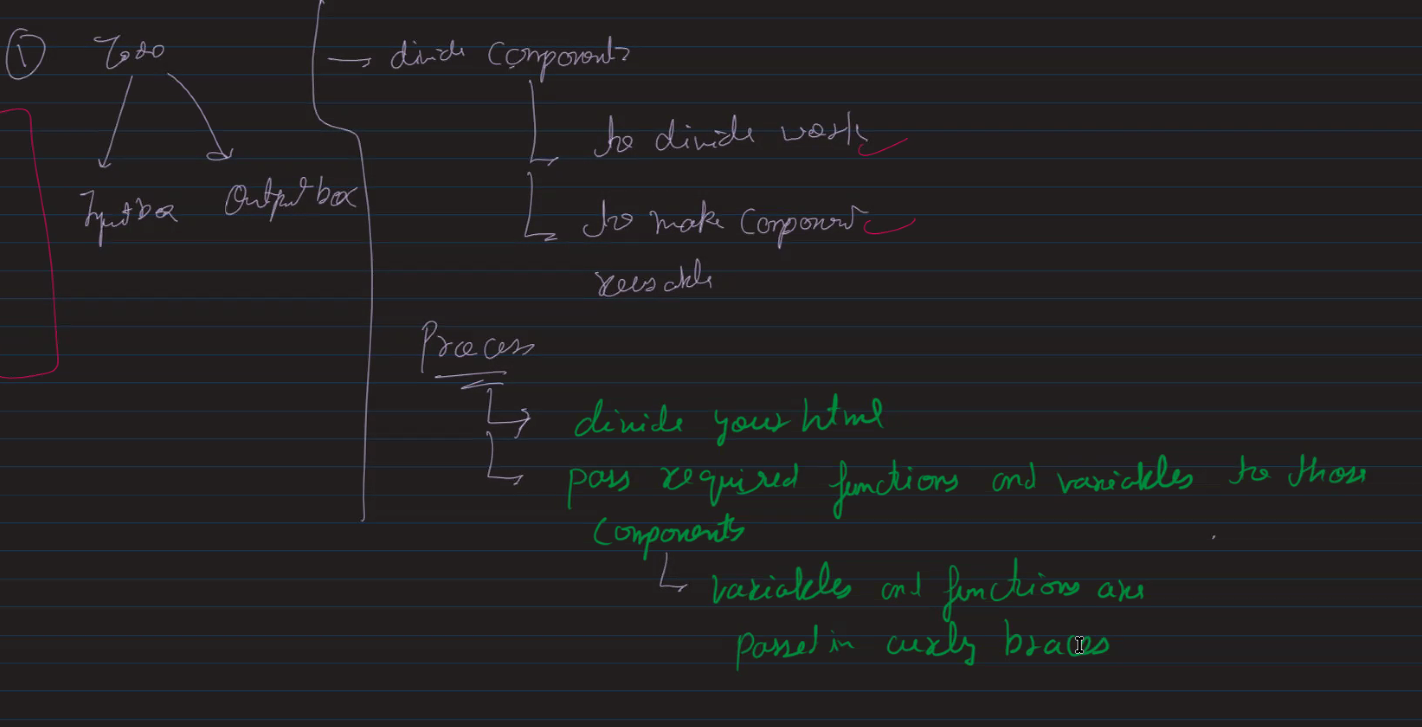 ① Todo
Inputbox Outputbox
→ divide Components
to divide work
to make Component
reusable
Process
divide your html
pass required functions and variables to those
Components
variables and functions are
passed in curly braces